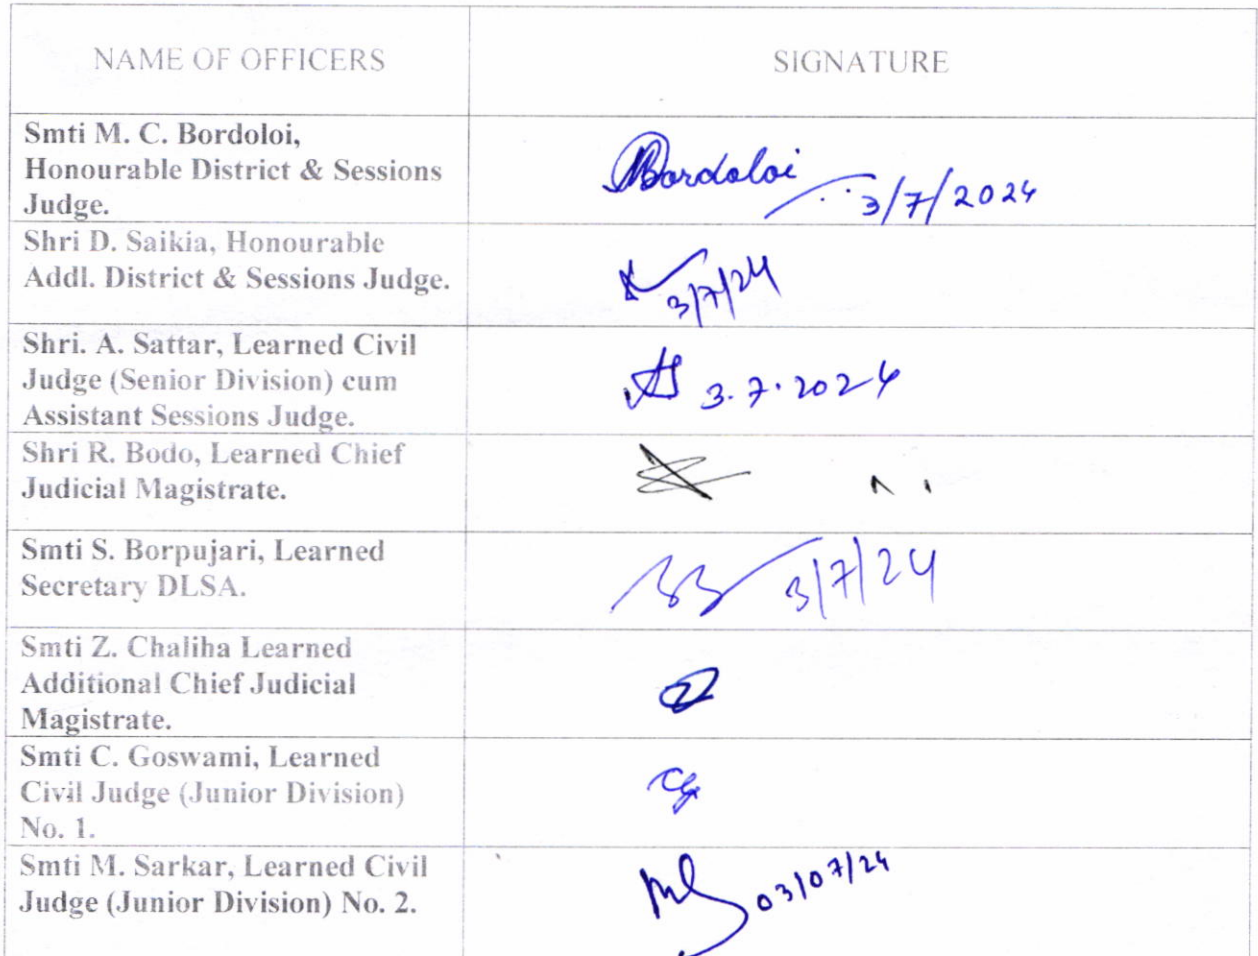 NAME OF OFFICERS
SIGNATURE
Smti M. C. Bordoloi,
Honourable District & Sessions
Judge.
Bordoloi
3/7/2024
Shri D. Saikia, Honourable
Addl. District & Sessions Judge.
3/7/24
Shri. A. Sattar, Learned Civil
Judge (Senior Division) cum
Assistant Sessions Judge.
3.7.2024
Shri R. Bodo, Learned Chief
Judicial Magistrate.
Smti S. Borpujari, Learned
Secretary DLSA.
3/7/24
Smti Z. Chaliha Learned
Additional Chief Judicial
Magistrate.
Smti C. Goswami, Learned
Civil Judge (Junior Division)
No. 1.
Smti M. Sarkar, Learned Civil
Judge (Junior Division) No. 2.
03/07/24